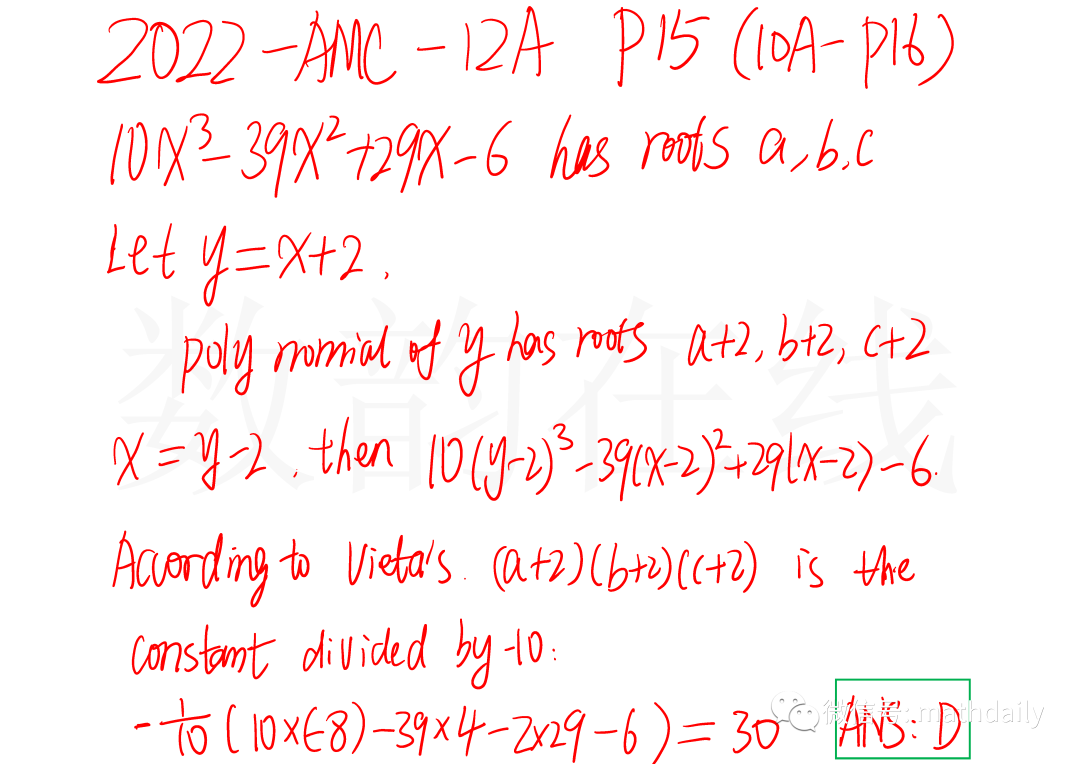 2022-AMC-12A P15 (10A-P16)
10x³-39x²+29x-6 has roots a,b,c
Let y=x+2,
polynomial of y has roots a+2, b+2, c+2
数韵在线
x=y-2, then 10(y-2)³-39(x-2)²+29(x-2)-6.
According to Vieta's. (a+2)(b+2)(c+2) is the
constant divided by -10:
-1/10 (10×(-8)-39×4-2×29-6)=30 ANS: D
微信号: mathdaily